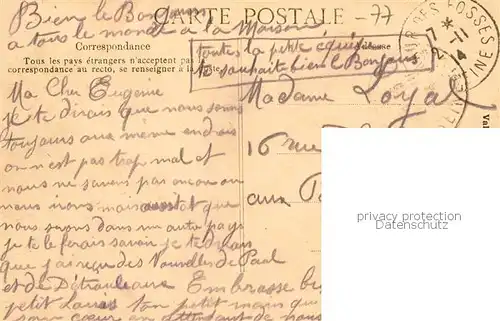 Bien le Bonjour
a tous le monde a la Maison
CARTE POSTALE
-77
Correspondance
Adresse
Tous les pays étrangers n'acceptent pas
correspondance au recto, se renseigner à la
toutes la petite équi
te souhait bien le Bonjour
DES FOSSES
7 *
2-11
14
Ma Cher Eugenie
Madame Loya
je te dirais que nous sommes
toujours aux même endrois
16 rue
on n'est pas trop mal et
nous ne savons pas encore ou
aux
nous irons mais aussitot que
nous serons dans un autre pays
je te le ferais savoir je te dirais
que j'ai reçu des Nouvelles de Paul
et de Embrasse
petit Louis ton petit
son coeur en attendant de
privacy protection
Datenschutz